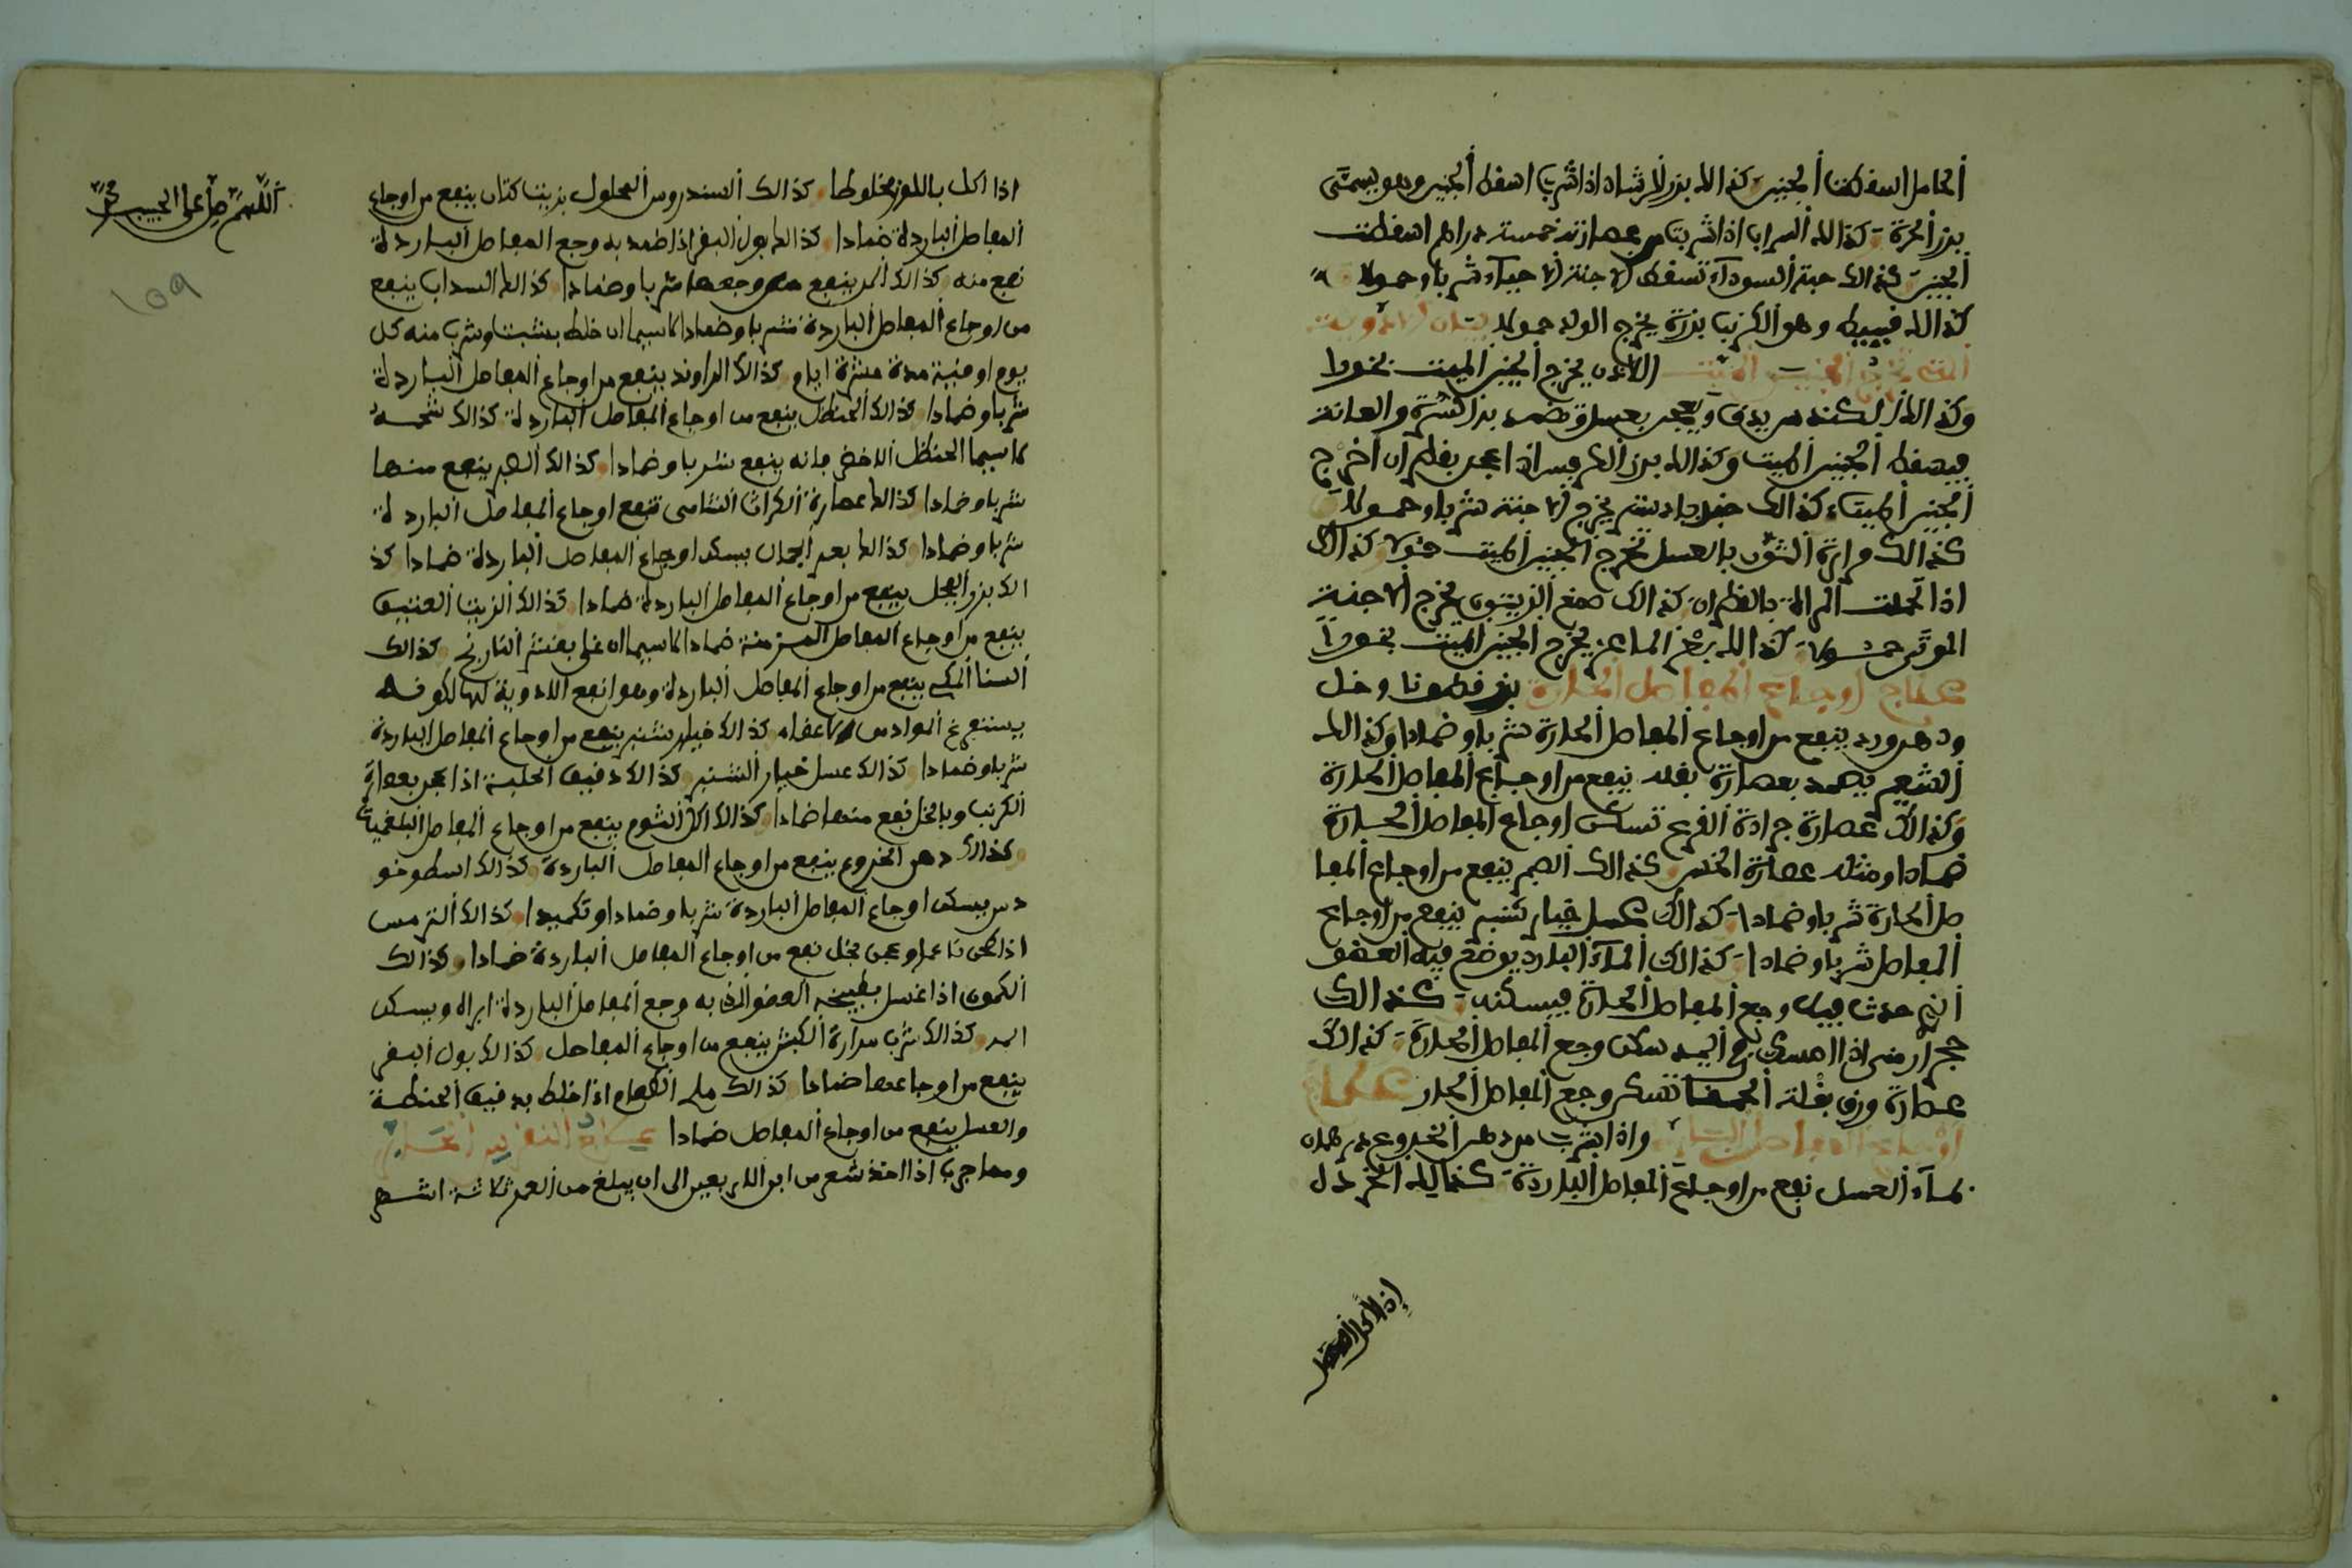 الحامل اسقطت الجنين كذالك بزر الرشاد اذا شرب اسقط الجنين وهو يسمى
بزر الحرف كذالك السراب اذا شربت من عصارته خمسة دراهم اسقطت
الجنين كذالك حبة السودآء تسقط الاجنة الاحيآء شربا وحمولا
كذالك قنبيط وهو الكرنب بزره يخرج الولد حمولا بيان الادوية
التي تخرج الجنين الميت اللاذن يخرج الجنين الميت بخورا
وكذالك الكندس يدق ويعجن بعسل وتضمد به السرة والعانة
فيسقط الجنين الميت وكذالك بزر الكرفس اذا عجن بقطران اخرج
الجنين الميت كذالك جند بادستر يخرج الاجنة شربا وحمولا
كذالك مرارة الثور بالعسل تخرج الجنين الميت حمولا كذالك
اذا تحملت المراة بالقطران كذالك صمغ الزيتون يخرج الاجنة
الموتى حمولا كذالك بعر الماعز يخرج الجنين الميت بخورا
علاج اوجاع المفاصل الحارة بزر قطونا وخل
ودهن ورد ينفع من اوجاع المفاصل الحارة شربا وضمادا وكذالك
الشعير يضمد بعصارة بقله ينفع من اوجاع المفاصل الحارة
وكذالك عصارة جرادة القرع تسكن اوجاع المفاصل الحارة
ضمادا ومثله عصارة الخس كذالك الصبر ينفع من اوجاع المفا
صل الحارة شربا وضمادا كذالك عسل خيار شنبر ينفع من اوجاع
المفاصل شربا وضمادا كذالك المآء البارد يوضع فيه العضو
الذي حدث فيه وجع المفاصل الحارة فيسكنه كذالك
حجر ارمني اذا امسك في اليد سكن وجع المفاصل الحارة كذالك
عصارة ورق بقلة الحمقا تسكن وجع المفاصل الحار علاج
اوجاع المفاصل الباردة واذا شرب من دهن الخروع درهمان
بمآء العسل نفع من اوجاع المفاصل الباردة كذالك الخردل
اذا اكل
اذا اكل باللوز مخلوطا كذالك السندروس المحلول بزيت كتان ينفع من اوجاع
المفاصل الباردة ضمادا كذالك بول البقر اذا ضمد به وجع المفاصل الباردة
نفع منه كذالك المر ينفع من وجعها شربا وضمادا كذالك السداب ينفع
من اوجاع المفاصل الباردة شربا وضمادا لاسيما ان خلط بشبت وشرب منه كل
يوم اوقية مدة عشرة ايام كذالك الراوند ينفع من اوجاع المفاصل الباردة
شربا وضمادا كذالك الحنظل ينفع من اوجاع المفاصل الباردة كذالك شحمه
لاسيما الحنظل الاخضر فانه ينفع شربا وضمادا كذالك الصبر ينفع منها
شربا وضمادا كذالك عصارة الكراث الشامي تنفع اوجاع المفاصل الباردة
شربا وضمادا كذالك بعر الجمال يسكن اوجاع المفاصل الباردة ضمادا كذ
الك بزر الفجل ينفع من اوجاع المفاصل الباردة ضمادا كذالك الزيت العتيق
ينفع من اوجاع المفاصل المزمنة ضمادا لاسيما ان غلي بقشر النارنج كذالك
السنا المكي ينفع من اوجاع المفاصل الباردة وهو انفع الادوية لها لكونه
يستفرغ المواد من الاعضاء كذالك خيار شنبر ينفع من اوجاع المفاصل الباردة
شربا وضمادا كذالك عسل خيار الشنبر كذالك دقيق الحلبة اذا عجن بعصارة
الكرنب وبالخل نفع منها ضمادا كذالك اكل الثوم ينفع من اوجاع المفاصل البلغمية
كذالك دهن الخروع ينفع من اوجاع المفاصل الباردة كذالك اسطوخو
دس يسكن اوجاع المفاصل الباردة شربا وضمادا وتكميدا كذالك الترمس
اذا طحن ناعما وعجن بخل نفع من اوجاع المفاصل الباردة ضمادا كذالك
الكمون اذا غسل بطبيخه العضو الذي به وجع المفاصل الباردة ابراه ويسكن
المه كذالك شرب مرارة الكبش ينفع من اوجاع المفاصل كذالك بول البقر
ينفع من اوجاعها ضمادا كذالك ملح الطعام اذا خلط بدقيق الحنطة
والعسل ينفع من اوجاع المفاصل ضمادا علاج النقرس
ومما جرب اذا اخذ شعر من ابن الاربعين الى ان يبلغ من العمر ثلاثة اشهر
اللهم صل على الحبيب محمد
١٥٩